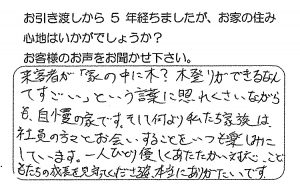 お引き渡しから 5 年経ちましたが、お家の住み
心地はいかがでしょうか?
お客様のお声をお聞かせ下さい。
来客者が「家の中に木?木登りができるなん
てすごい」という言葉に照れくさいながら
も、自慢の家です。そして何より私たち家族は
社員の方々とお会いすることをいつも楽しみに
しています。一人ひとり優しくあたたかい対応と、こど
もたちの成長を見守ってくださる姿、本当にありがたいです